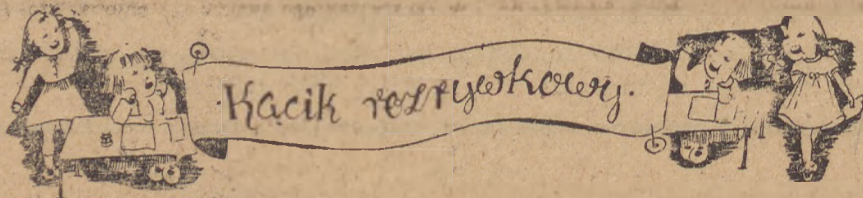 ·Kącik rozrywkowy·